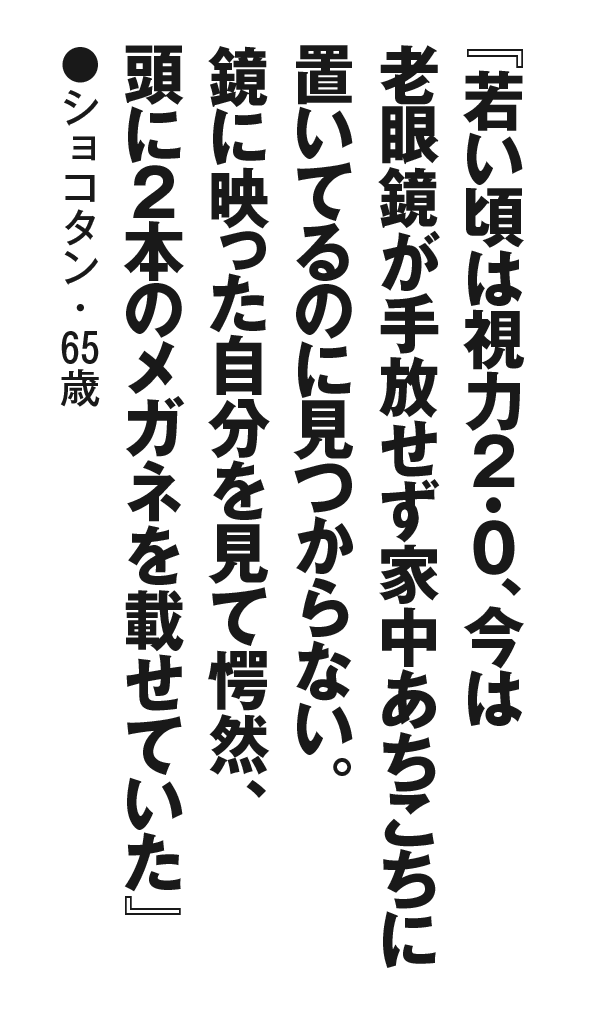 『若い頃は視力２・０、今は
老眼鏡が手放せず家中あちこちに
置いてるのに見つからない。
鏡に映った自分を見て愕然、
頭に２本のメガネを載せていた』
●ショコタン・65歳